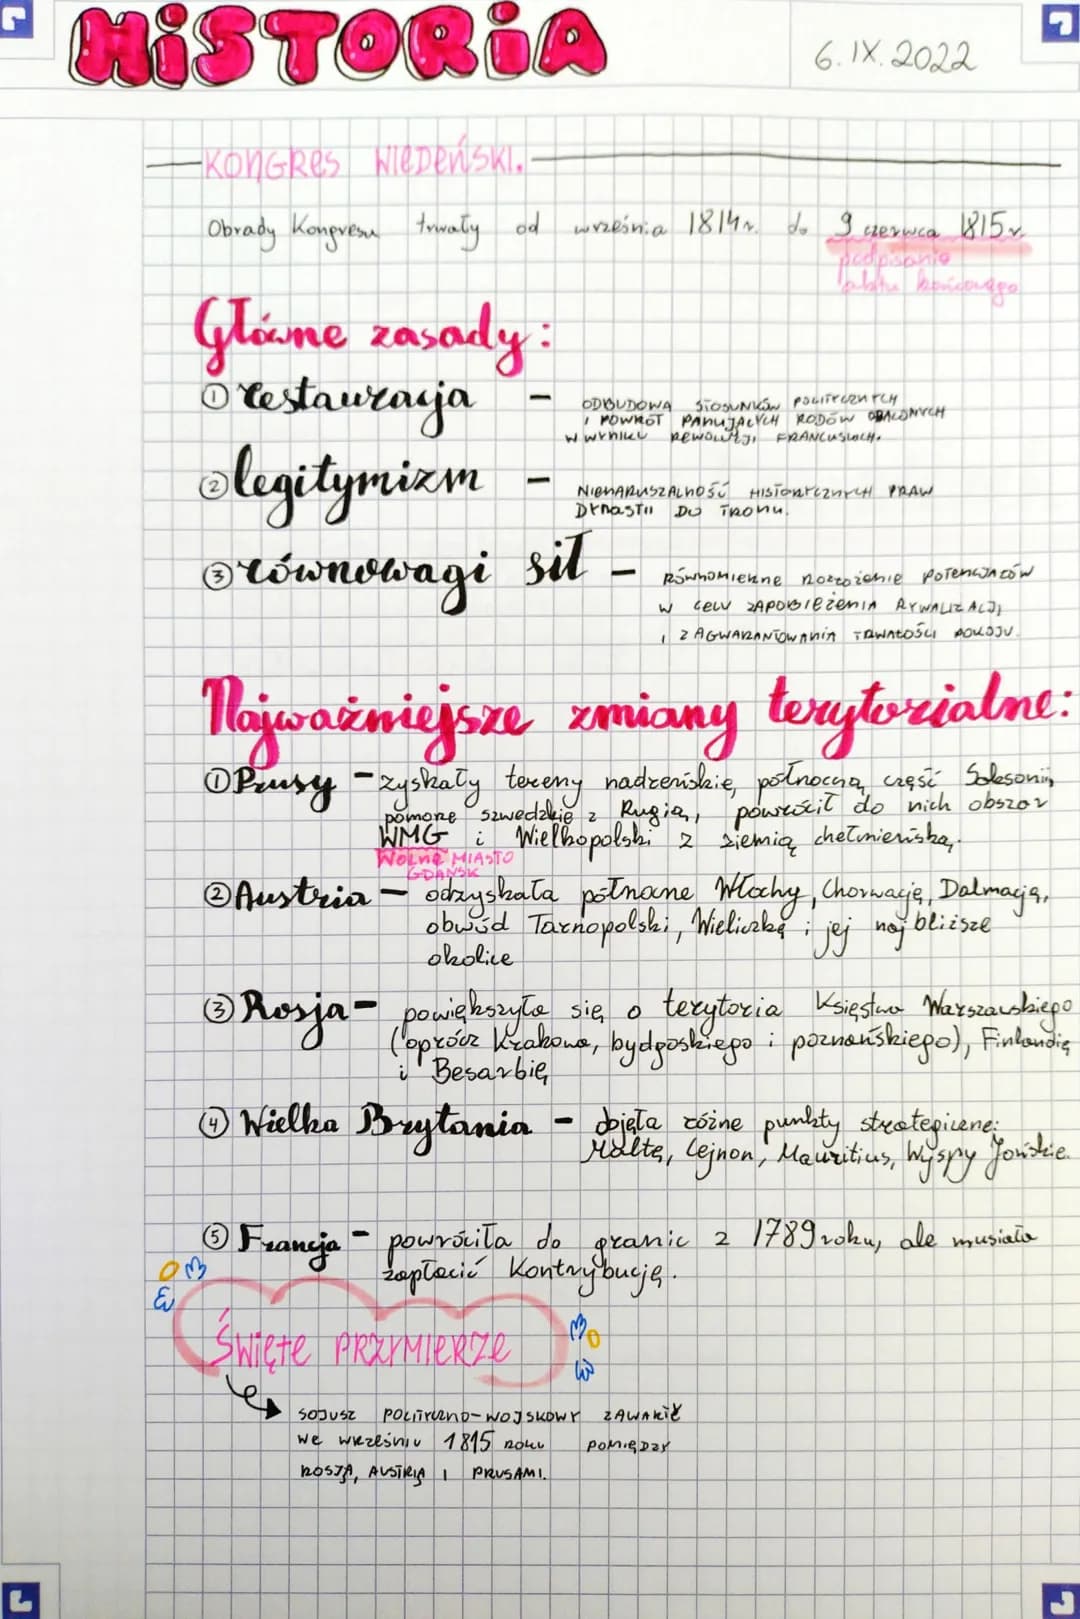 HiSTORiA
6.IX.2022
KONGRES WIEDEŃSKI.
Obrady Kongresu trwały od września 1814r. do 9 czerwca 1815r
podpisanie
aktu końcowego
Główne zasady:
① restauracja - ODBUDOWA STOSUNKÓW POLITYCZNYCH
I POWRÓT PANUJĄCYCH RODÓW OBALONYCH
W WYNIKU REWOLUCJI FRANCUSKICH.
② legitymizm - NIENARUSZALNOŚĆ HISTORYCZNYCH PRAW
DYNASTII DO TRONU.
③ równowagi sił - RÓWNOMIERNE ROZŁOŻENIE POTENCJAŁÓW
W CELU ZAPOBIEŻENIA RYWALIZACJI
I ZAGWARANTOWANIA TRWAŁOŚCI POKOJU.
Najważniejsze zmiany terytorialne:
① Prusy - zyskały tereny nadreńskie, północną część Saksonii,
pomorze szwedzkie z Rugią, powrócił do nich obszar
WMG i Wielkopolski z ziemią chełmieńską.
WOLNE MIASTO
GDAŃSK
② Austria - odzyskała północne Włochy, Chorwację, Dalmację,
obwód Tarnopolski, Wieliczkę i jej najbliższe
okolice
③ Rosja - powiększyła się o terytoria Księstwa Warszawskiego
(oprócz Krakowa, bydgoskiego i poznańskiego), Finlandię
i Besarbię
④ Wielka Brytania - objęła różne punkty strategiczne:
Maltę, Cejnon, Mauritius, Wyspy Jońskie.
⑤ Francja - powróciła do granic z 1789 roku, ale musiała
zapłacić kontrybucję.
ŚWIĘTE PRZYMIERZE
SOJUSZ POLITYCZNO-WOJSKOWY ZAWARTY
WE WRZEŚNIU 1815 ROKU POMIĘDZY
ROSJĄ, AUSTRIĄ I PRUSAMI.